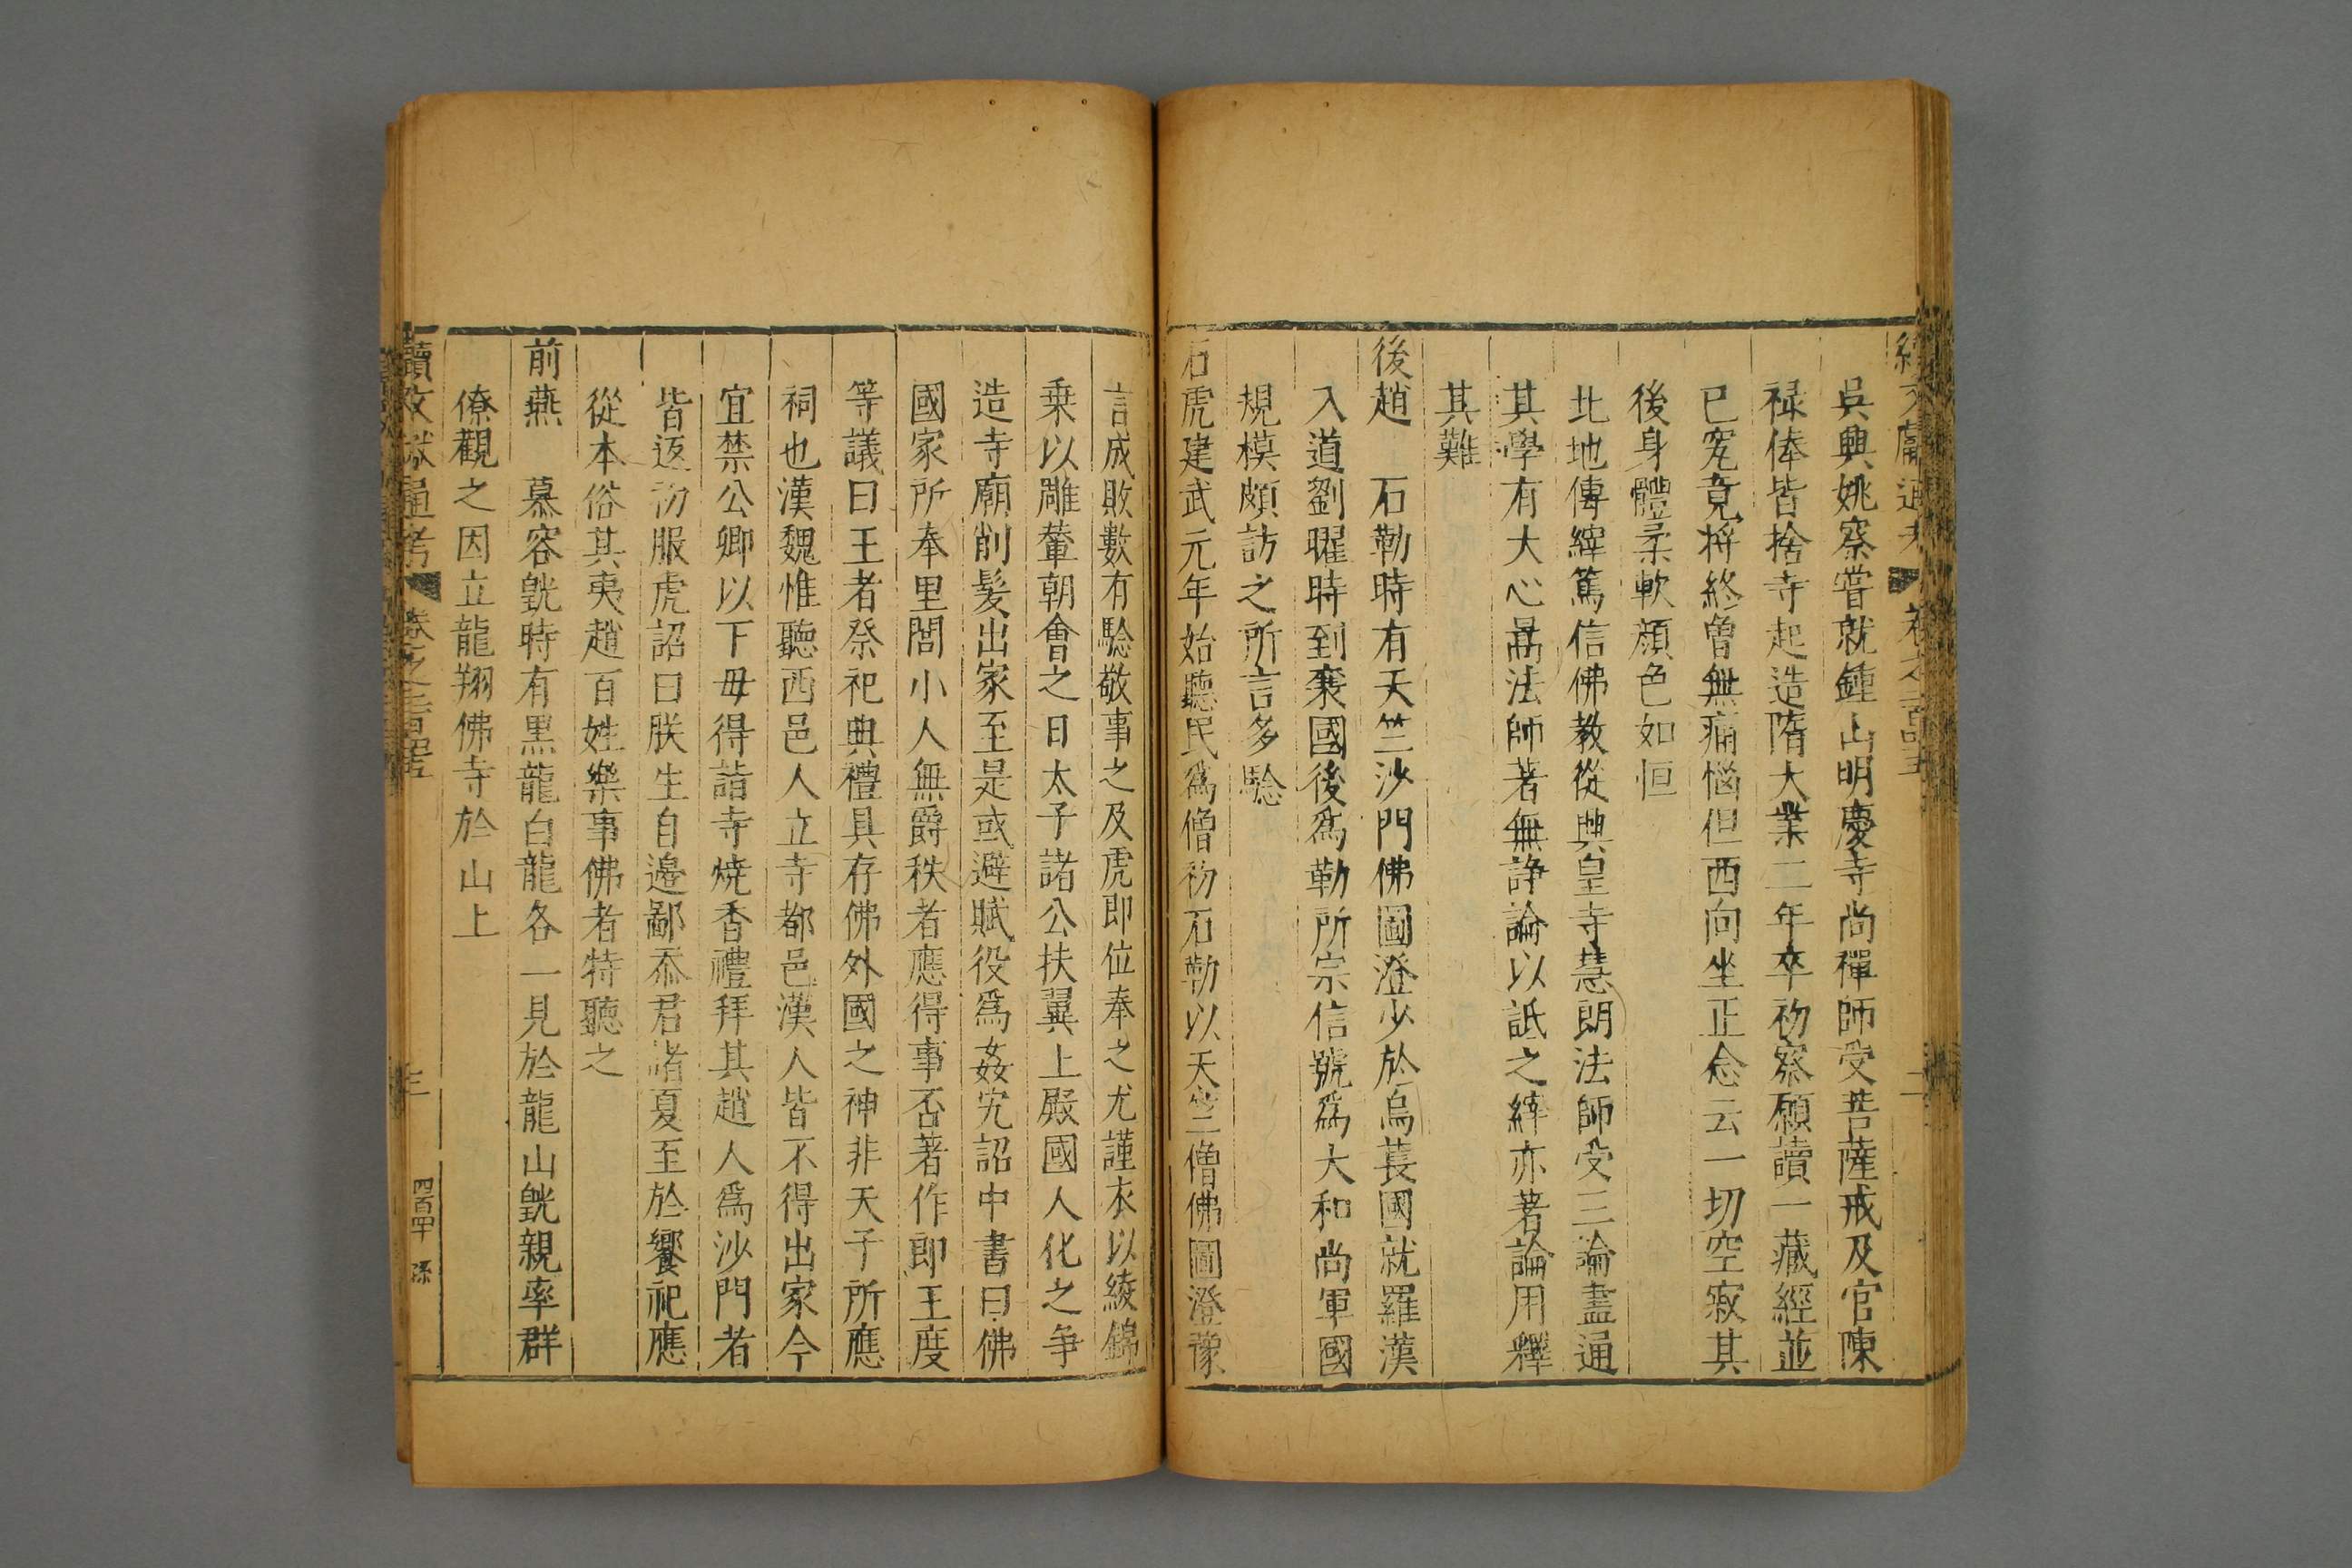 續文獻通考 卷之二百四五 二
吳興姚察嘗就鍾山明慶寺尚禪師受菩薩戒及官陳
祿俸皆捨寺起造隋大業二年卒初察願讀一藏經並
已究竟將終曾無痛惱但西向坐正念云一切空寂其
後身體柔軟顔色如恒
北地傅縡篤信佛教從興皇寺慧朗法師受三論盡通
其學有大心暠法師著無諍論以詆之縡亦著論用釋
其難
後趙 石勒時有天竺沙門佛圖澄少於烏萇國就羅漢
入道劉曜時到襄國後爲勒所宗信號爲大和尚軍國
規模頗訪之所言多驗
石虎建武元年始聽民爲僧初石勒以天竺僧佛圖澄豫
言成敗數有驗敬事之及虎即位奉之尤謹衣以綾錦
乗以雕輦朝會之日太子諸公扶翼上殿國人化之争
造寺廟削髮出家至是或避賦役爲姦宄詔中書曰佛
國家所奉里閭小人無爵秩者應得事否著作郎王度
等議曰王者祭祀典禮具存佛外國之神非天子所應
祠也漢魏惟聽西邑人立寺都邑漢人皆不得出家今
宜禁公卿以下毋得詣寺燒香禮拜其趙人爲沙門者
皆返初服虎詔曰朕生自邊鄙忝君諸夏至於饗祀應
從本俗其夷趙百姓樂事佛者特聽之
前燕 慕容皝時有黒龍白龍各一見於龍山皝親率群
僚觀之因立龍翔佛寺於山上
續文獻通考 卷之二百四五 三 四百四十 孫